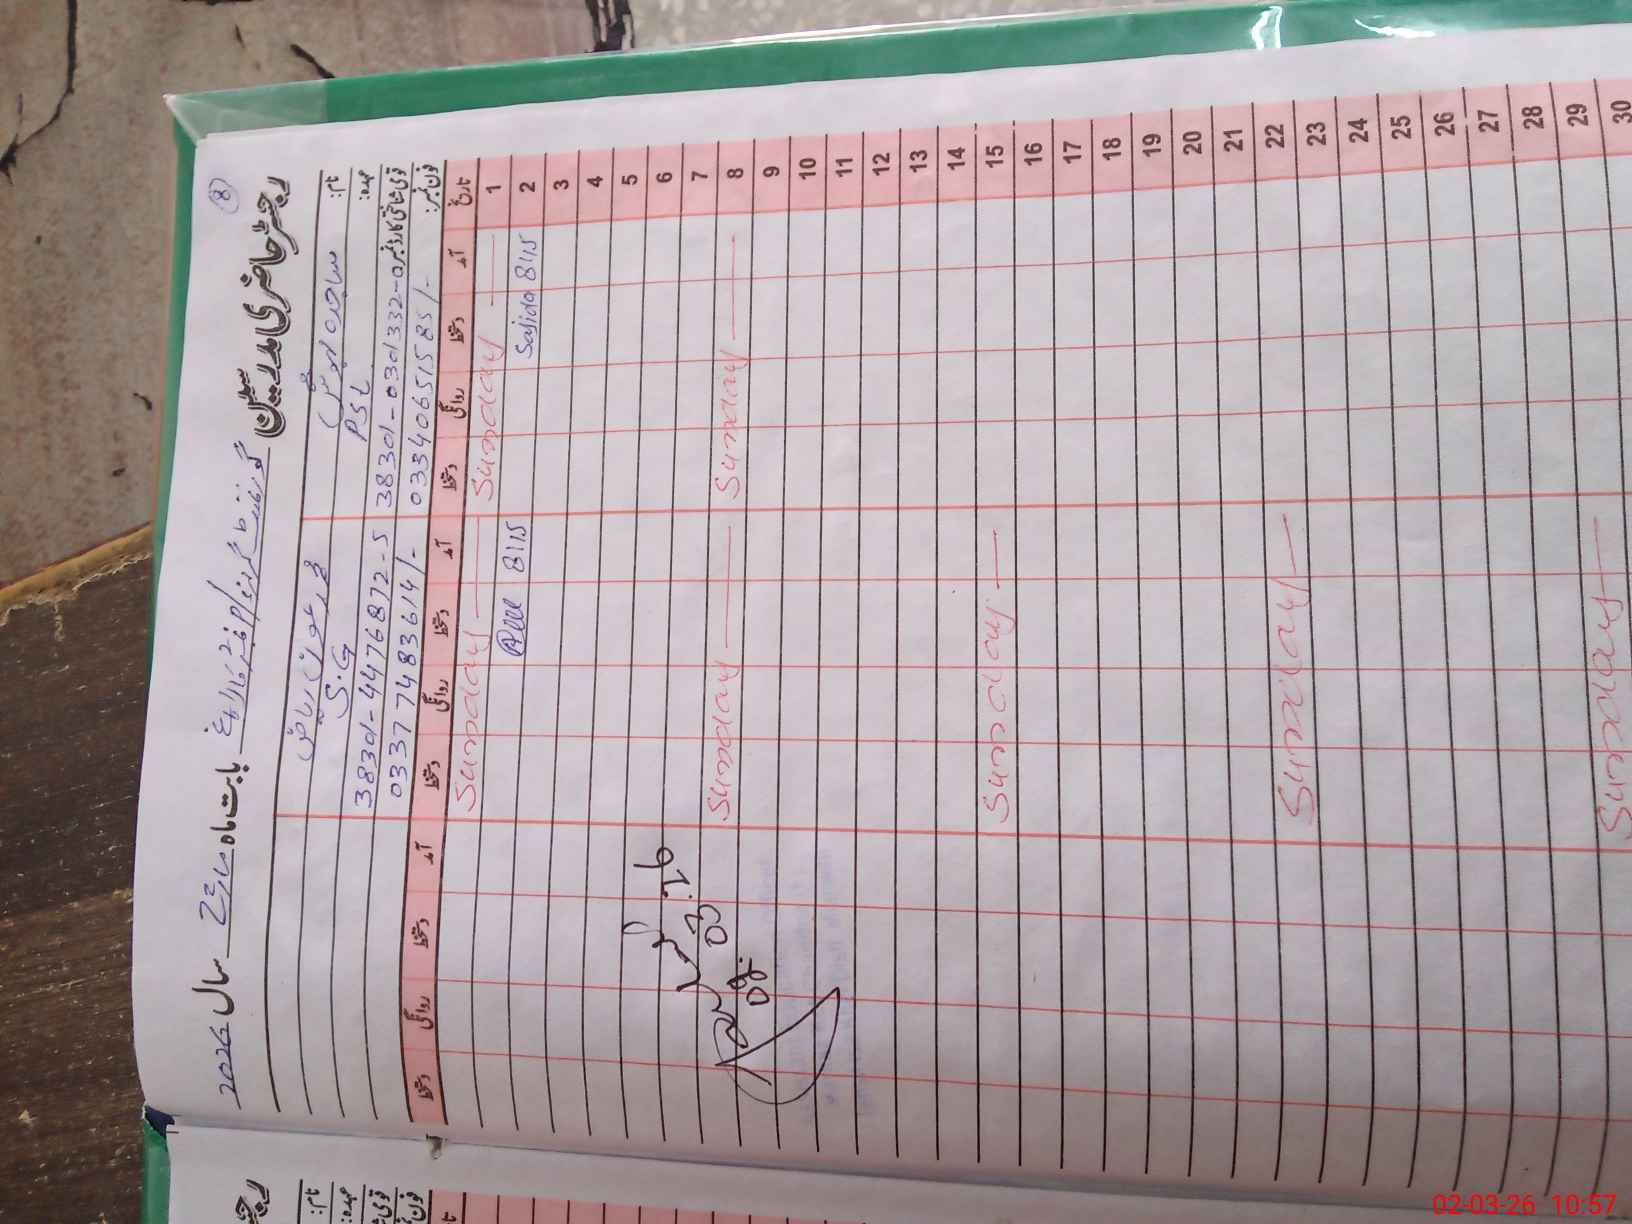 (8)
رجسٹر حاضری مدرسین گورنمنٹ گرلز ہائی بابت ماہ مارچ سال 2026
نام: ساجدہ
عہدہ: PSL S.G
قومی شناختی کارڈ نمبر: 38301-0301332-0 38301-4476872-5
فون نمبر: 03340651585/- 03377483614/-
تاریخ آمد دستخط روانگی دستخط آمد دستخط روانگی دستخط آمد دستخط روانگی دستخط
1 Sunday Sunday
2 8:15 Sajida 8:15
3
4
5
6
7
8 Sunday Sunday
9
10
11
12
13
14
15 Sunday
16
17
18
19
20
21
22 Sunday
23
24
25
26
27
28
29 Sunday
30
نام:
عہدہ:
02-03-26 10:57